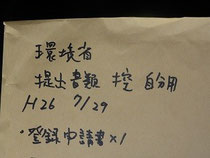 環境省
提出書類 控 自分用
H26 7/29
・登録申請書×1